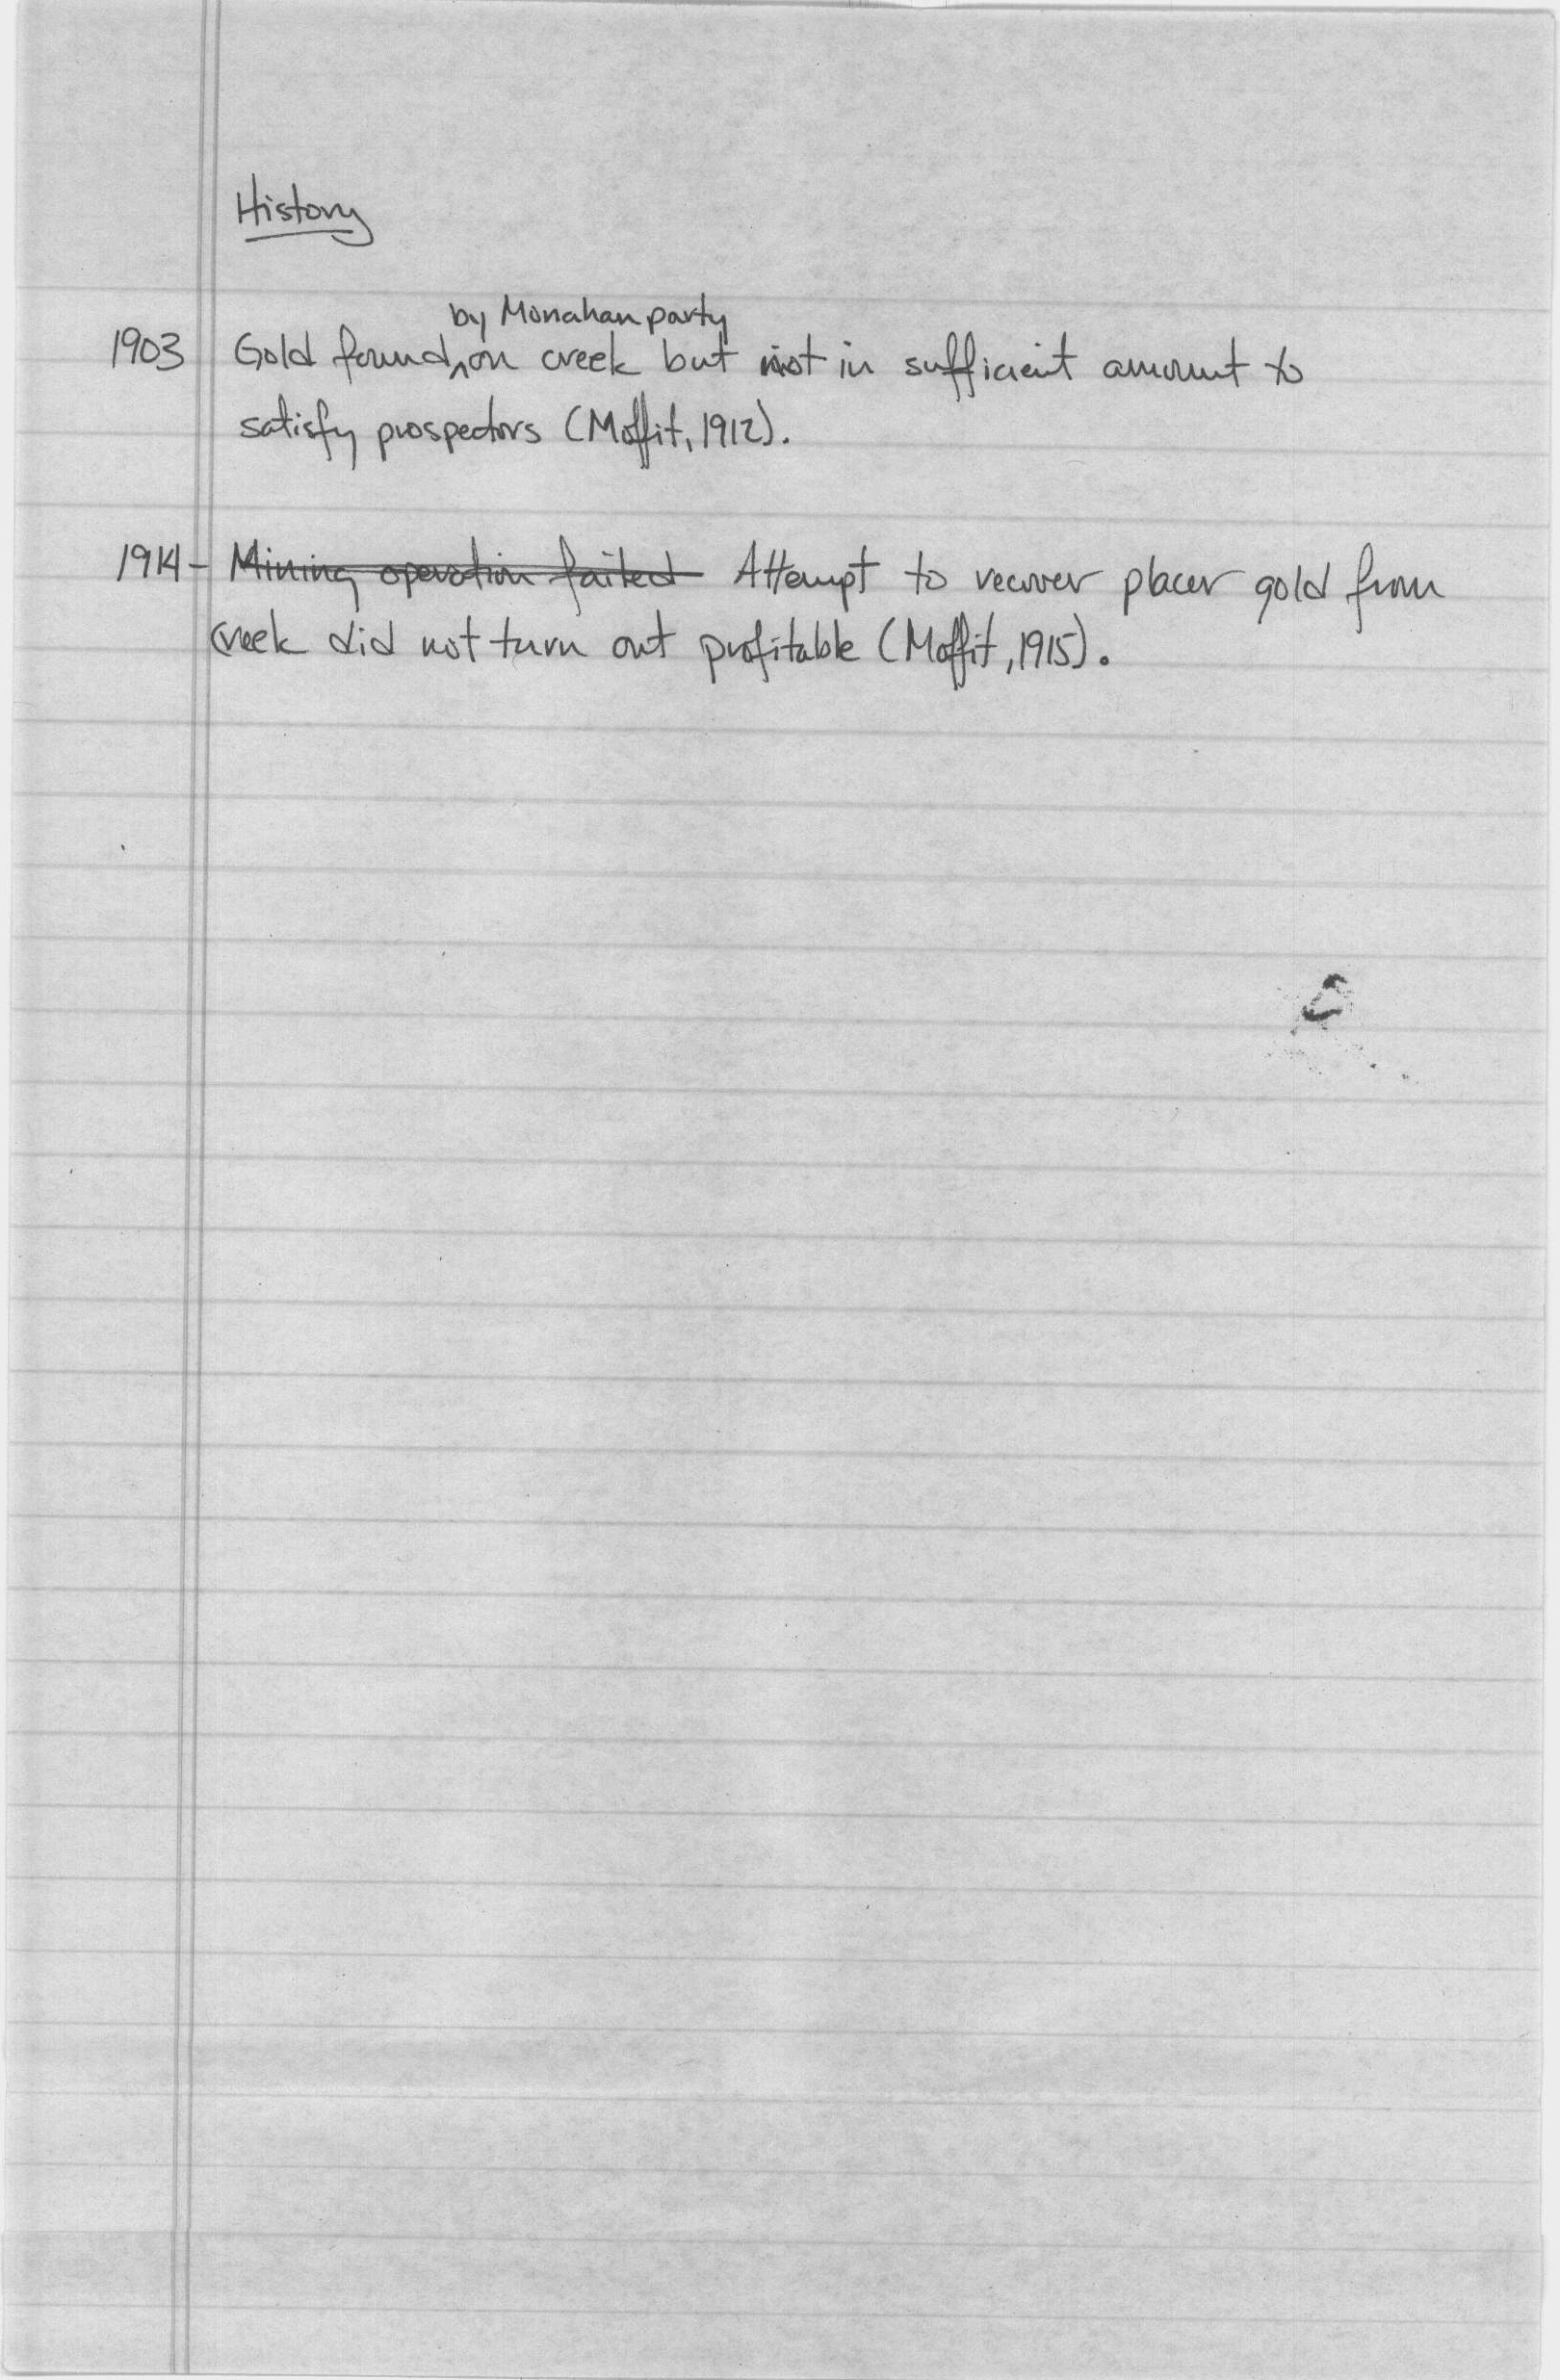 History
by Monahan party
1903 Gold found on creek but not in sufficient amount to
satisfy prospectors (Moffit, 1912).
1914- Mining operation failed Attempt to recover placer gold from
creek did not turn out profitable (Moffit, 1915).